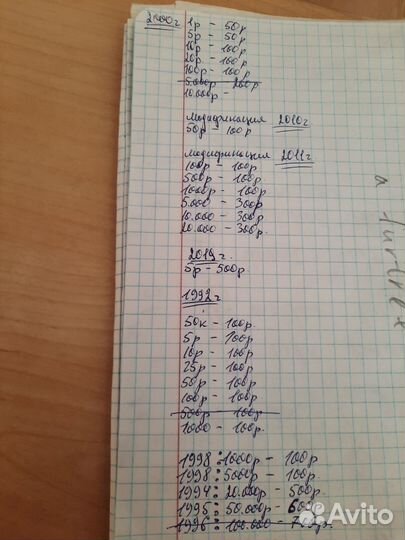 2000г
1р - 50р
5р - 50р
10р - 100р
20р - 100р
100р - 100р
5000р - 200р
10.000р -
модификация 2010г
50р - 100р
модификация 2011г
100р - 100р
500р - 100р
1000р - 100р
5.000 - 300р
10.000 - 300р
20.000 - 300р.
5р - 500р.
1992г
50к - 100р.
5р - 100р
10р - 100р
25р - 100р
50р - 100р
100р - 100р
500р - 100р
1000 - 100р.
1998: 1000р - 100р
1998: 5000р - 100р.
1994: 20.000р - 500р.
1995: 50.000р - 600р
1996: 100.000 -
Avito